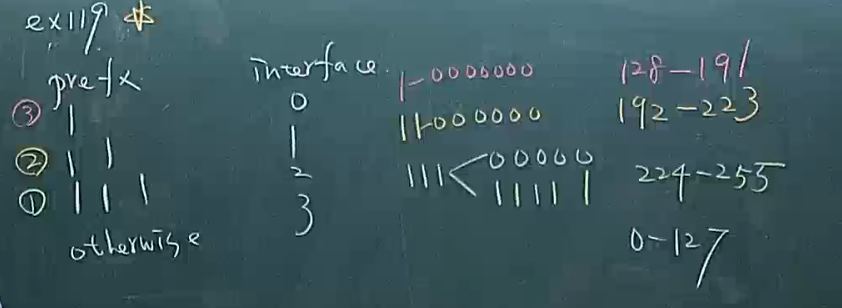 ex119 ☆
prefx interface
③ 1 0 1-0000000 128-191
② 1 1 1 11-000000 192-223
① 1 1 1 2 111< 00000 11111 224-255
otherwise 3 0-127